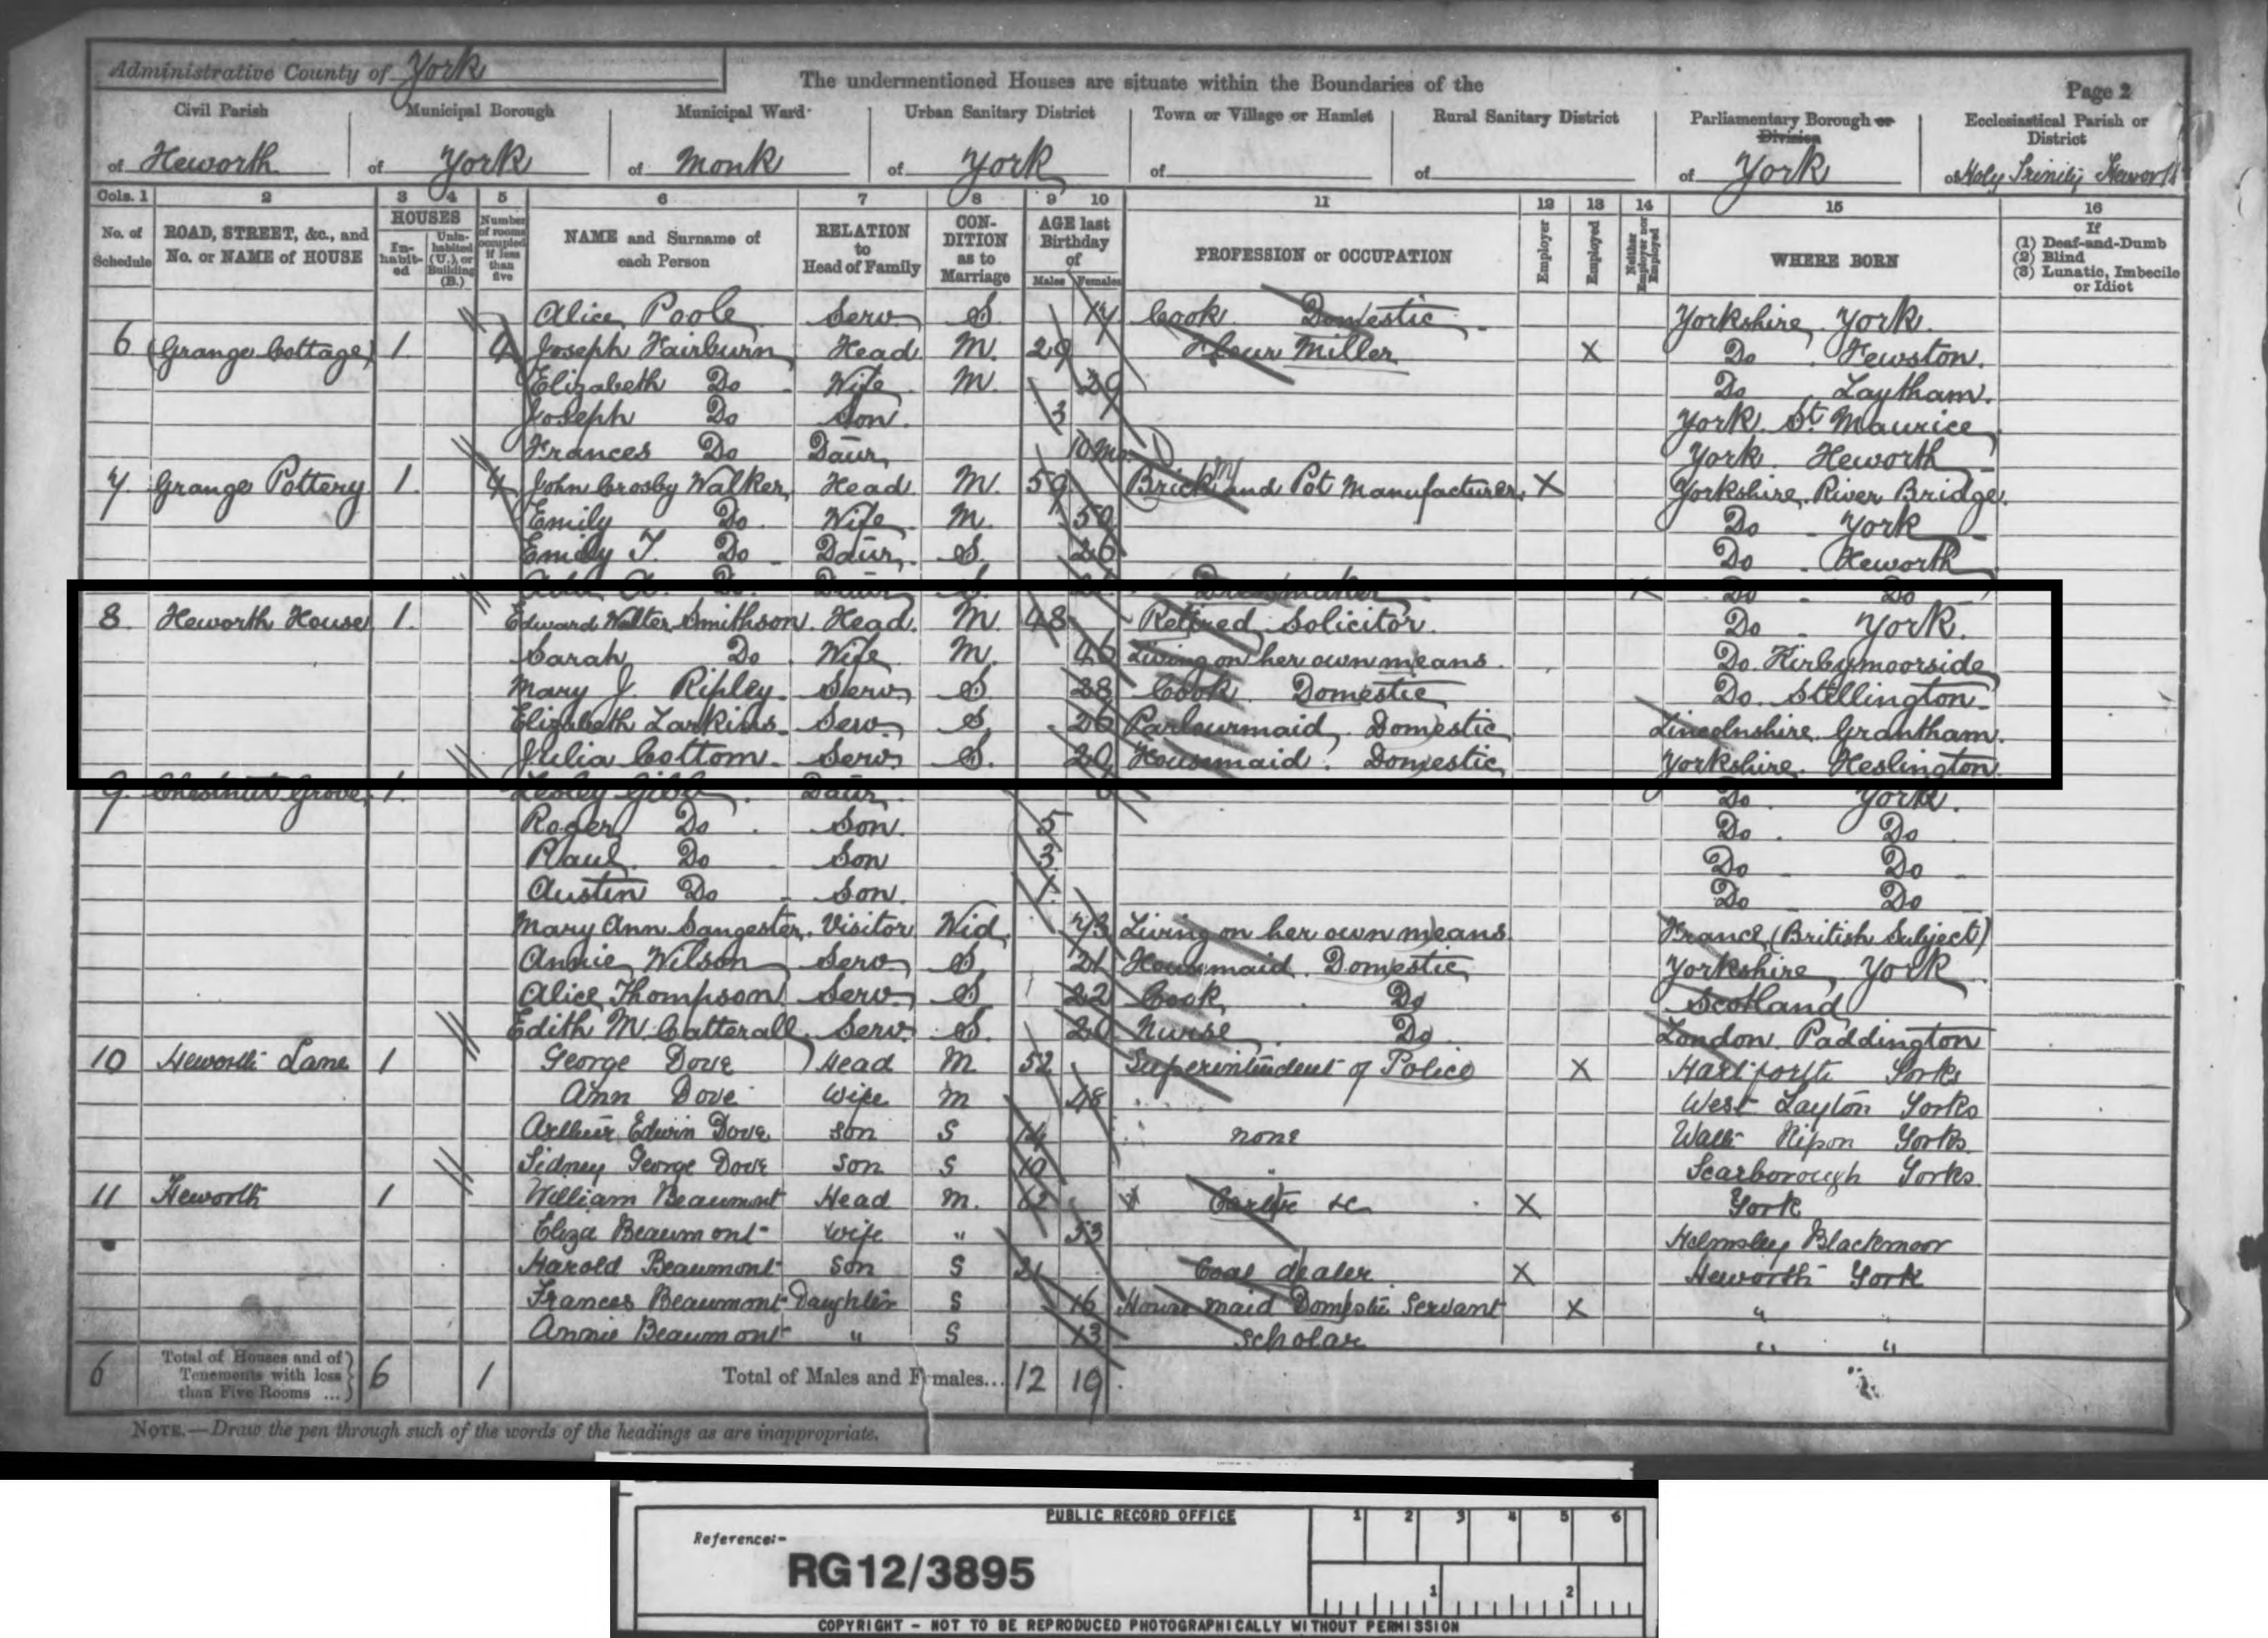 Administrative County of York
The undermentioned Houses are situate within the Boundaries of the
Page 2
Civil Parish
Municipal Borough
Municipal Ward
Urban Sanitary District
Town or Village or Hamlet
Rural Sanitary District
Parliamentary Borough or Division
Ecclesiastical Parish or District
of Heworth
of York
of Monk
of York
of
of
of York
of Holy Trinity Heworth
Cols. 1 2 3 4 5 6 7 8 9 10 11 12 13 14 15 16
No. of Schedule
ROAD, STREET, &c., and No. or NAME of HOUSE
HOUSES
In-habit-ed
Unin-habited (U.), or Building (B.)
Number of rooms occupied if less than five
NAME and Surname of each Person
RELATION to Head of Family
CON-DITION as to Marriage
AGE last Birthday of
Males Females
PROFESSION or OCCUPATION
Employer
Employed
Neither Employer nor Employed
WHERE BORN
If
(1) Deaf-and-Dumb
(2) Blind
(3) Lunatic, Imbecile or Idiot
Alice Poole Serv S 17 Cook Domestic Yorkshire York
6 Grange Cottage 1 4 Joseph Fairburn Head M 29 Flour Miller X Do Fewston
Elizabeth Do Wife M 29 Do Laytham
Joseph Do Son 3 York St Maurice
Frances Do Daur 10 mo York Heworth
7 Grange Pottery 1 4 John Crosby Walker Head M 59 Brick and Pot Manufacturer X Yorkshire River Bridge
Emily Do Wife M 59 Do York
Emily T. Do Daur S 26 Do Heworth
Ada A. Do Daur S 21 Dressmaker X Do Do
8 Heworth House 1 Edward Walter Smithson Head M 48 Retired Solicitor Do York
Sarah Do Wife M 46 Living on her own means Do Kirbymoorside
Mary J. Ripley Serv S 28 Cook Domestic Do Stillington
Elizabeth Larkins Serv S 26 Parlourmaid Domestic Lincolnshire Grantham
Julia Cottom Serv S 20 Housemaid Domestic Yorkshire Heslington
9 Chestnut Grove 1 Lesley Gibb Daur 6 Do York
Roger Do Son 5 Do Do
Paul Do Son 3 Do Do
Austin Do Son 1 Do Do
Mary Ann Sangester Visitor Wid 73 Living on her own means France (British Subject)
Annie Wilson Serv S 21 Housmaid Domestic Yorkshire York
Alice Thompson Serv S 22 Cook Do Scotland
Edith M. Catterall Serv S 20 Nurse Do London Paddington
10 Heworth Lane 1 George Dove Head M 52 Superintendent of Police X Hartforth Yorks
Ann Dove Wife M 48 West Layton Yorks
Arthur Edwin Dove Son S 14 none Wath Ripon Yorks
Sidney George Dove Son S 10 Scarborough Yorks
11 Heworth 1 William Beaumont Head M. 62 &c X York
Eliza Beaumont Wife " 53 Helmsley Blackmoor
Harold Beaumont Son S 21 Coal dealer X Heworth York
Frances Beaumont Daughter S 16 House maid Domestic Servant X " "
Annie Beaumont " S 13 Scholar " "
6 Total of Houses and of Tenements with less than Five Rooms ... 6 1 Total of Males and Females... 12 19
NOTE.—Draw the pen through such of the words of the headings as are inappropriate.
PUBLIC RECORD OFFICE
1 2 3 4 5 6
Reference:-
RG12/3895
1 2
COPYRIGHT - NOT TO BE REPRODUCED PHOTOGRAPHICALLY WITHOUT PERMISSION